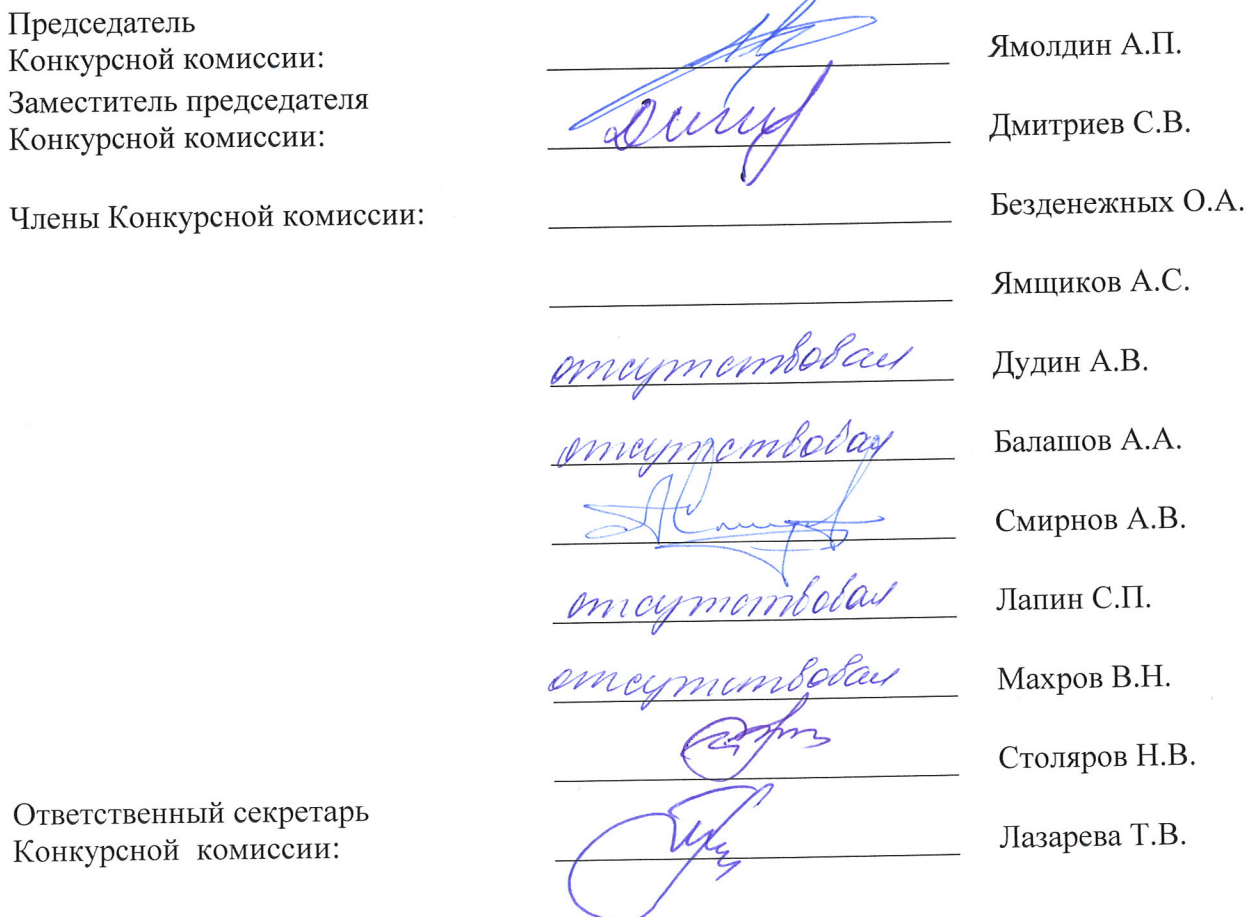 Председатель
Конкурсной комиссии: Ямолдин А.П.
Заместитель председателя
Конкурсной комиссии: Дмитриев С.В.
Члены Конкурсной комиссии: Безденежных О.А.
Ямщиков А.С.
отсутствовал Дудин А.В.
отсутствовал Балашов А.А.
Смирнов А.В.
отсутствовал Лапин С.П.
отсутствовал Махров В.Н.
Столяров Н.В.
Ответственный секретарь
Конкурсной комиссии: Лазарева Т.В.